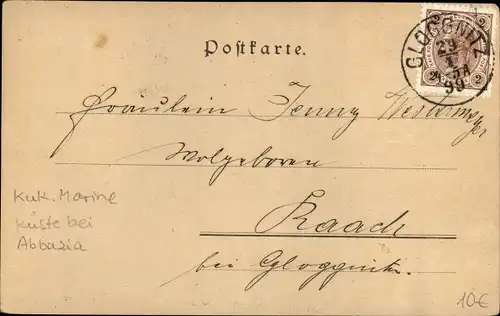 Postkarte.
2 2
GLOGGNITZ
29
99
Fräulein Jenny
Wolgeboren
Raach
bei Gloggnitz.
KuK. Marine
Küste bei
Abbazia
10€